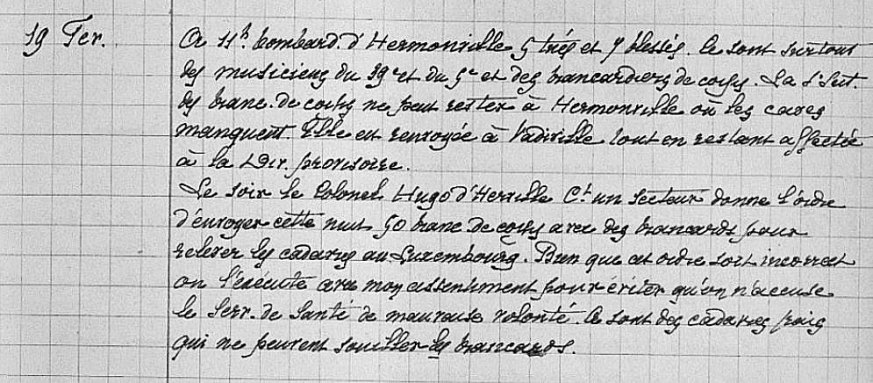 19 Fer. A 11h bombard. d'Hermonville 5 tués et 7 blessés. Ce sont surtout
des musiciens du 39e et du 5e et des brancardiers de corps. La 1e Sect.
des branc. de corps ne peut rester à Hermonville où les caves
manquent. Elle est renvoyée à Vadiville tout en restant affectée
à la Dir. provisoire.
Le soir le Colonel Hugo d'Herville Ct un Secteur donne l'ordre
d'envoyer cette nuit 50 branc. de corps avec des brancards pour
relever les cadavres au Luxembourg. Bien que cet ordre soit incorrect
on l'exécute avec mon assentiment pour éviter qu'on n'accuse
le Serv. de Santé de mauvaise volonté. Ce sont des cadavres frais
qui ne peuvent souiller les brancards.